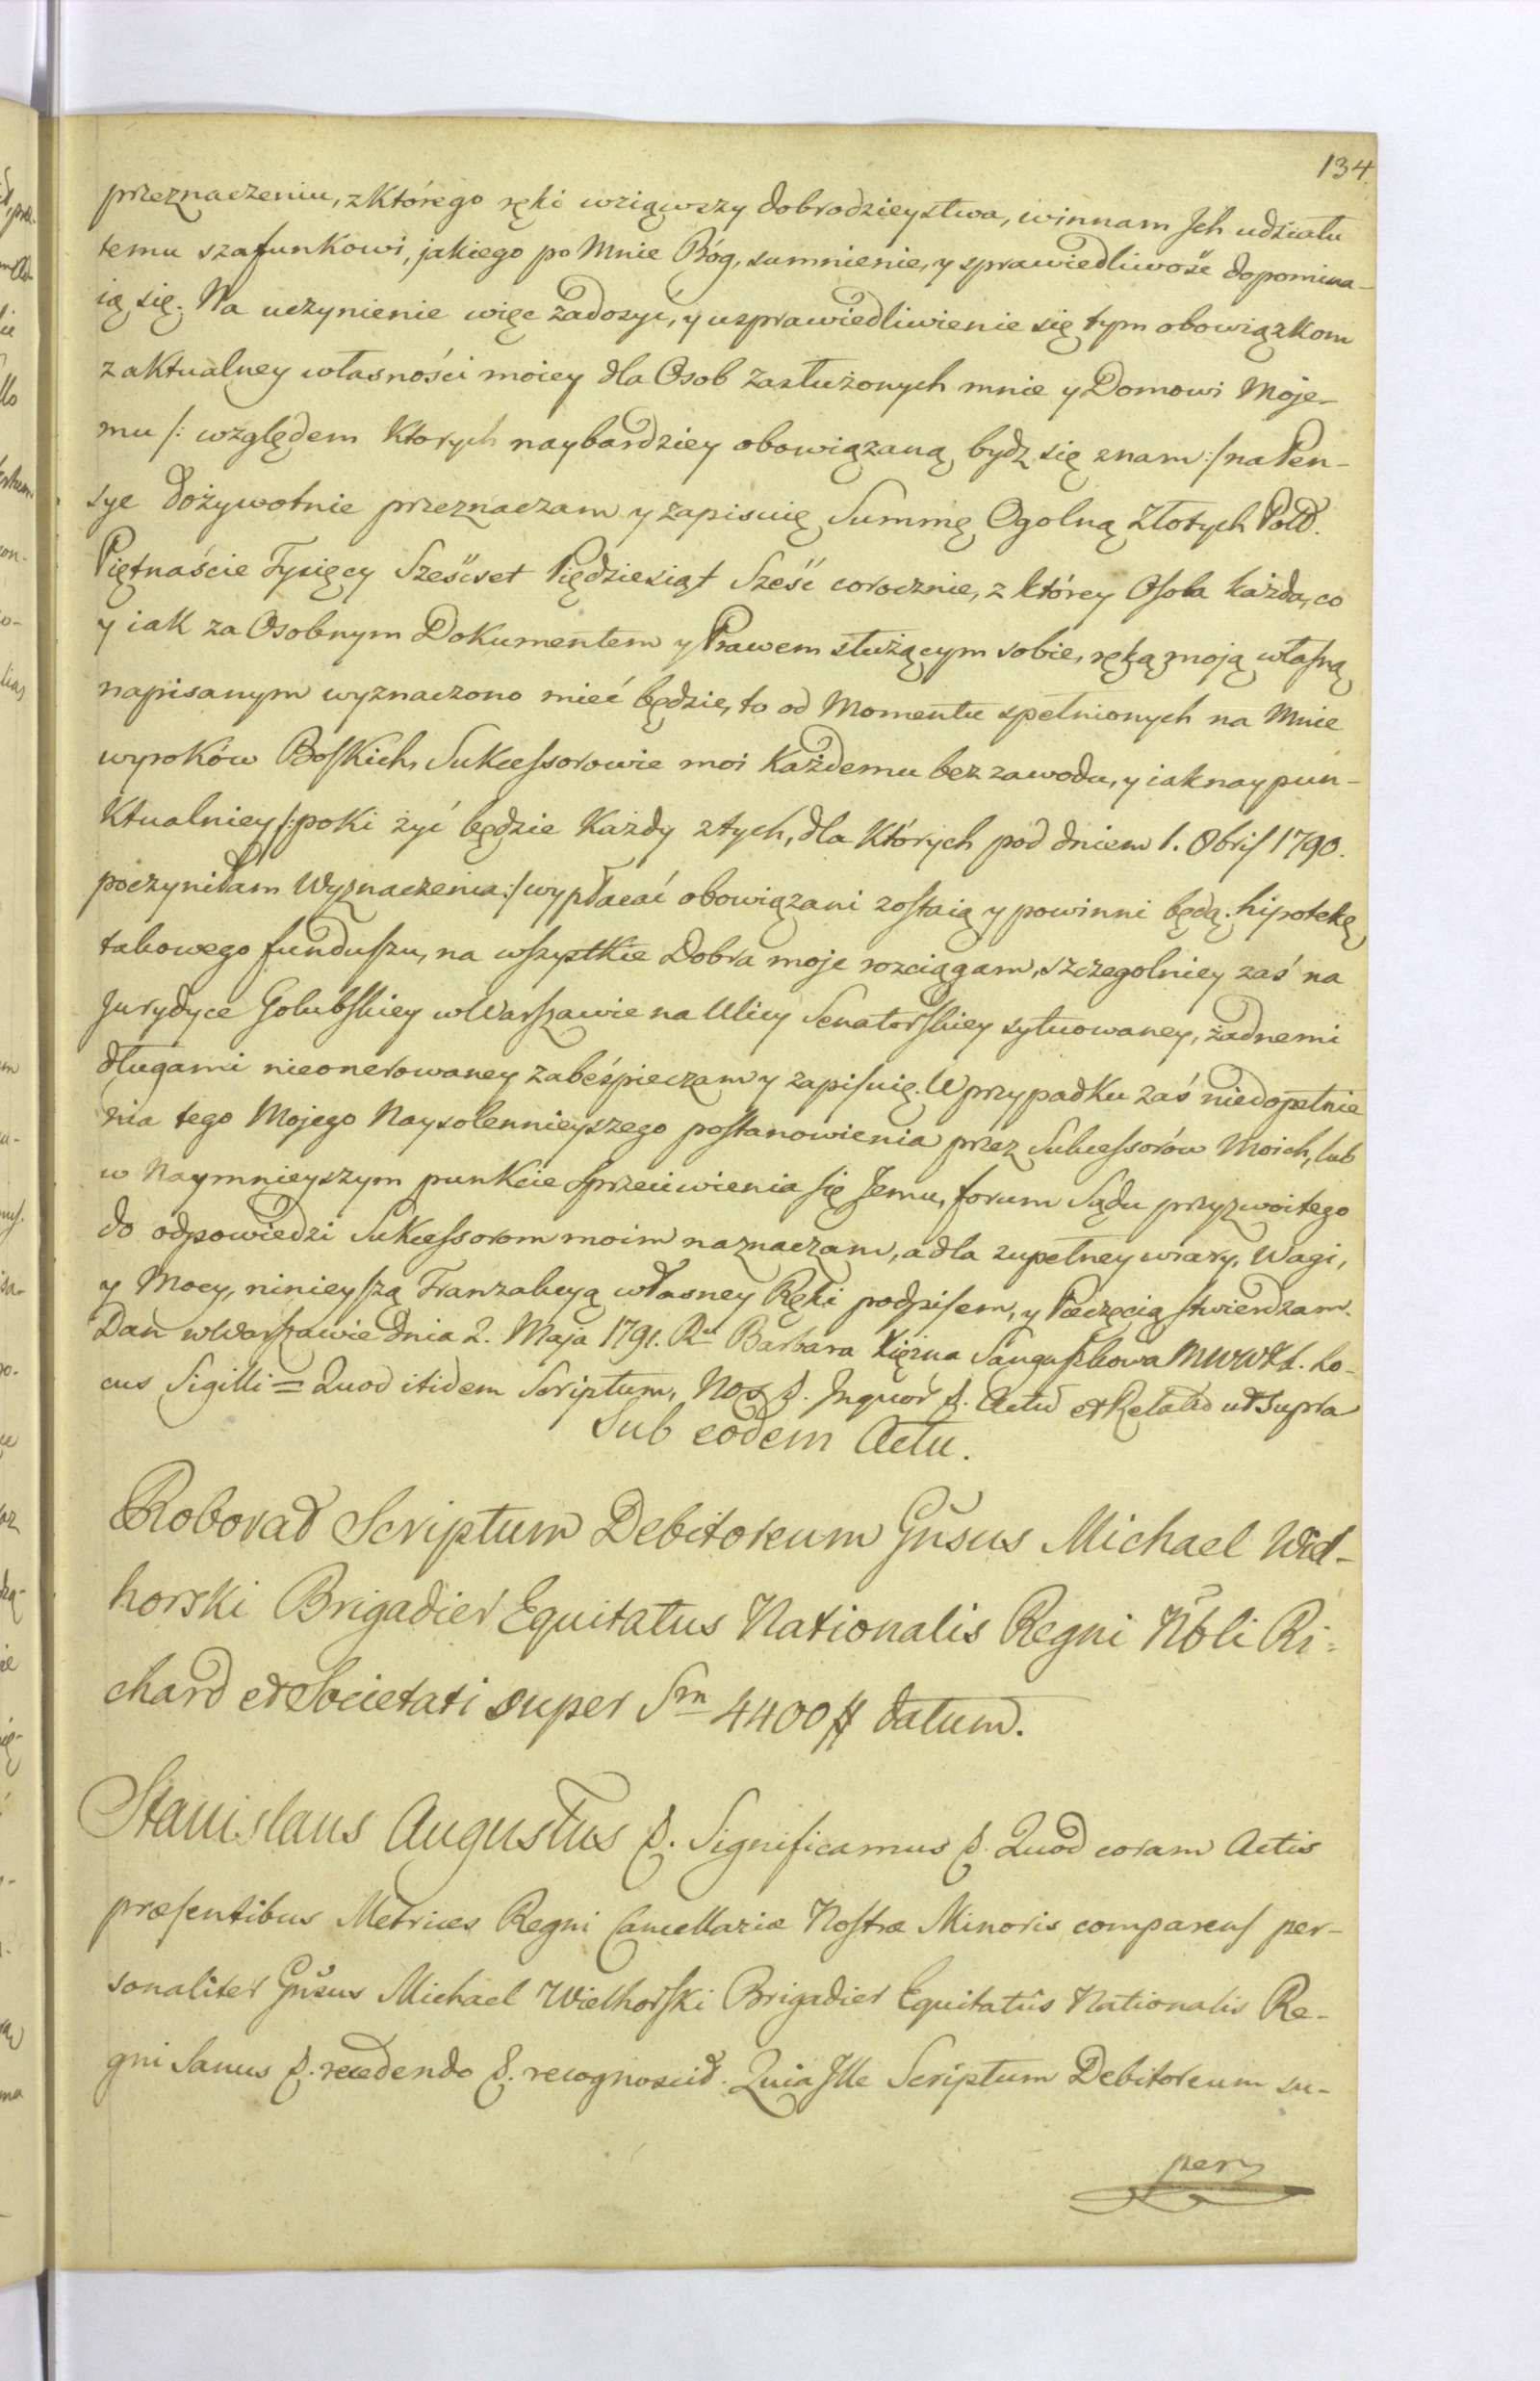 134.
przeznaczeniu, z Którego ręki wziąwszy dobrodzieystwa, winnam Jch udziału
temu szafunkowi, jakiego po Mnie Bóg, sumnienie, y sprawiedliwość dopomina-
ią się. Na uczynienie więc zadosyć, y usprawiedliwienie się tym obowiązkom
z aktualney własności moiey dla Osob zasłużonych mnie y Domowi Moje-
mu /: względem Ktorych naybardziey obowiązaną bydz się znam :/ na Pen-
sye dożywotnie przeznaczam y zapisuię Summę Ogolną Złotych Pold.
Piętnaście Tysięcy Sześćset Pięдziesiąt Sześć corocznie, z którey Osoba każda, co
y iak za Osobnym Dokumentem y Prawem służącym sobie, ręką moją własną
napisanym wyznaczono mieć będzie, to od Momentu spełnionych na Mnie
wyroków Boskich, Sukcessorowie moi Każdemu bez zawodu, y iak naypun-
Ktualniey /: poki żyć będzie Każdy z tych, dla Których pod dniem 1. Obris 1790.
poczyniłam Wyznaczenia :/ wypłacać obowiązani zostaią y powinni będą. hipotekę
takowego funduszu, na wszystkie Dobra moje rozciągam, szczegolniey zaś na
Jurydyce Golubskiey w Warszawie na Ulicy Senatorskiey sytuowaney, żadnemi
długami nieonerowaney zabeśpieczam y zapisuię. W przypadku zaś niedopełnie
nia tego Mojego Naysolennieyszego postanowienia przez Sukcessorów Moich, lub
w Naymnieyszym punkcie sprzeciwienia się Jemu, forum Sądu przyzwoitego
do odpowiedzi Sukcessorom moim naznaczam, a dla zupełney wiary, Wagi,
y Mocy, ninieyszą Tranzakcyą własney Ręki podpisem, y Pieczęcią stwierdzam.
Dan w Warszawie Dnia 2. Maja 1791. Ru Barbara Xiężna Sanguszkowa MWWXL. Lo-
cus Sigilli = Quod itidem Scriptum, Nos &. Inquor &. Actu et Relatio ut Supra
Sub eodem Actu.
Roborat Scriptum Debitoreum Gñsus Michael Wiel-
horski Brigadier Equitatus Nationalis Regni Nbli Ri=
chard et Societati super Sm 4400 # datum.
Stanislaus Augustus &. Significamus &. Quod coram Actis
præsentibus Metrices Regni Cancellariæ Nostræ Minoris comparens per-
sonaliter Gñsus Michael Wielhorski Brigadier Equitatûs Nationalis Re-
gni Sanus &. recedendo &. recognoscit. Quia Ille Scriptum Debitoreum su-
per